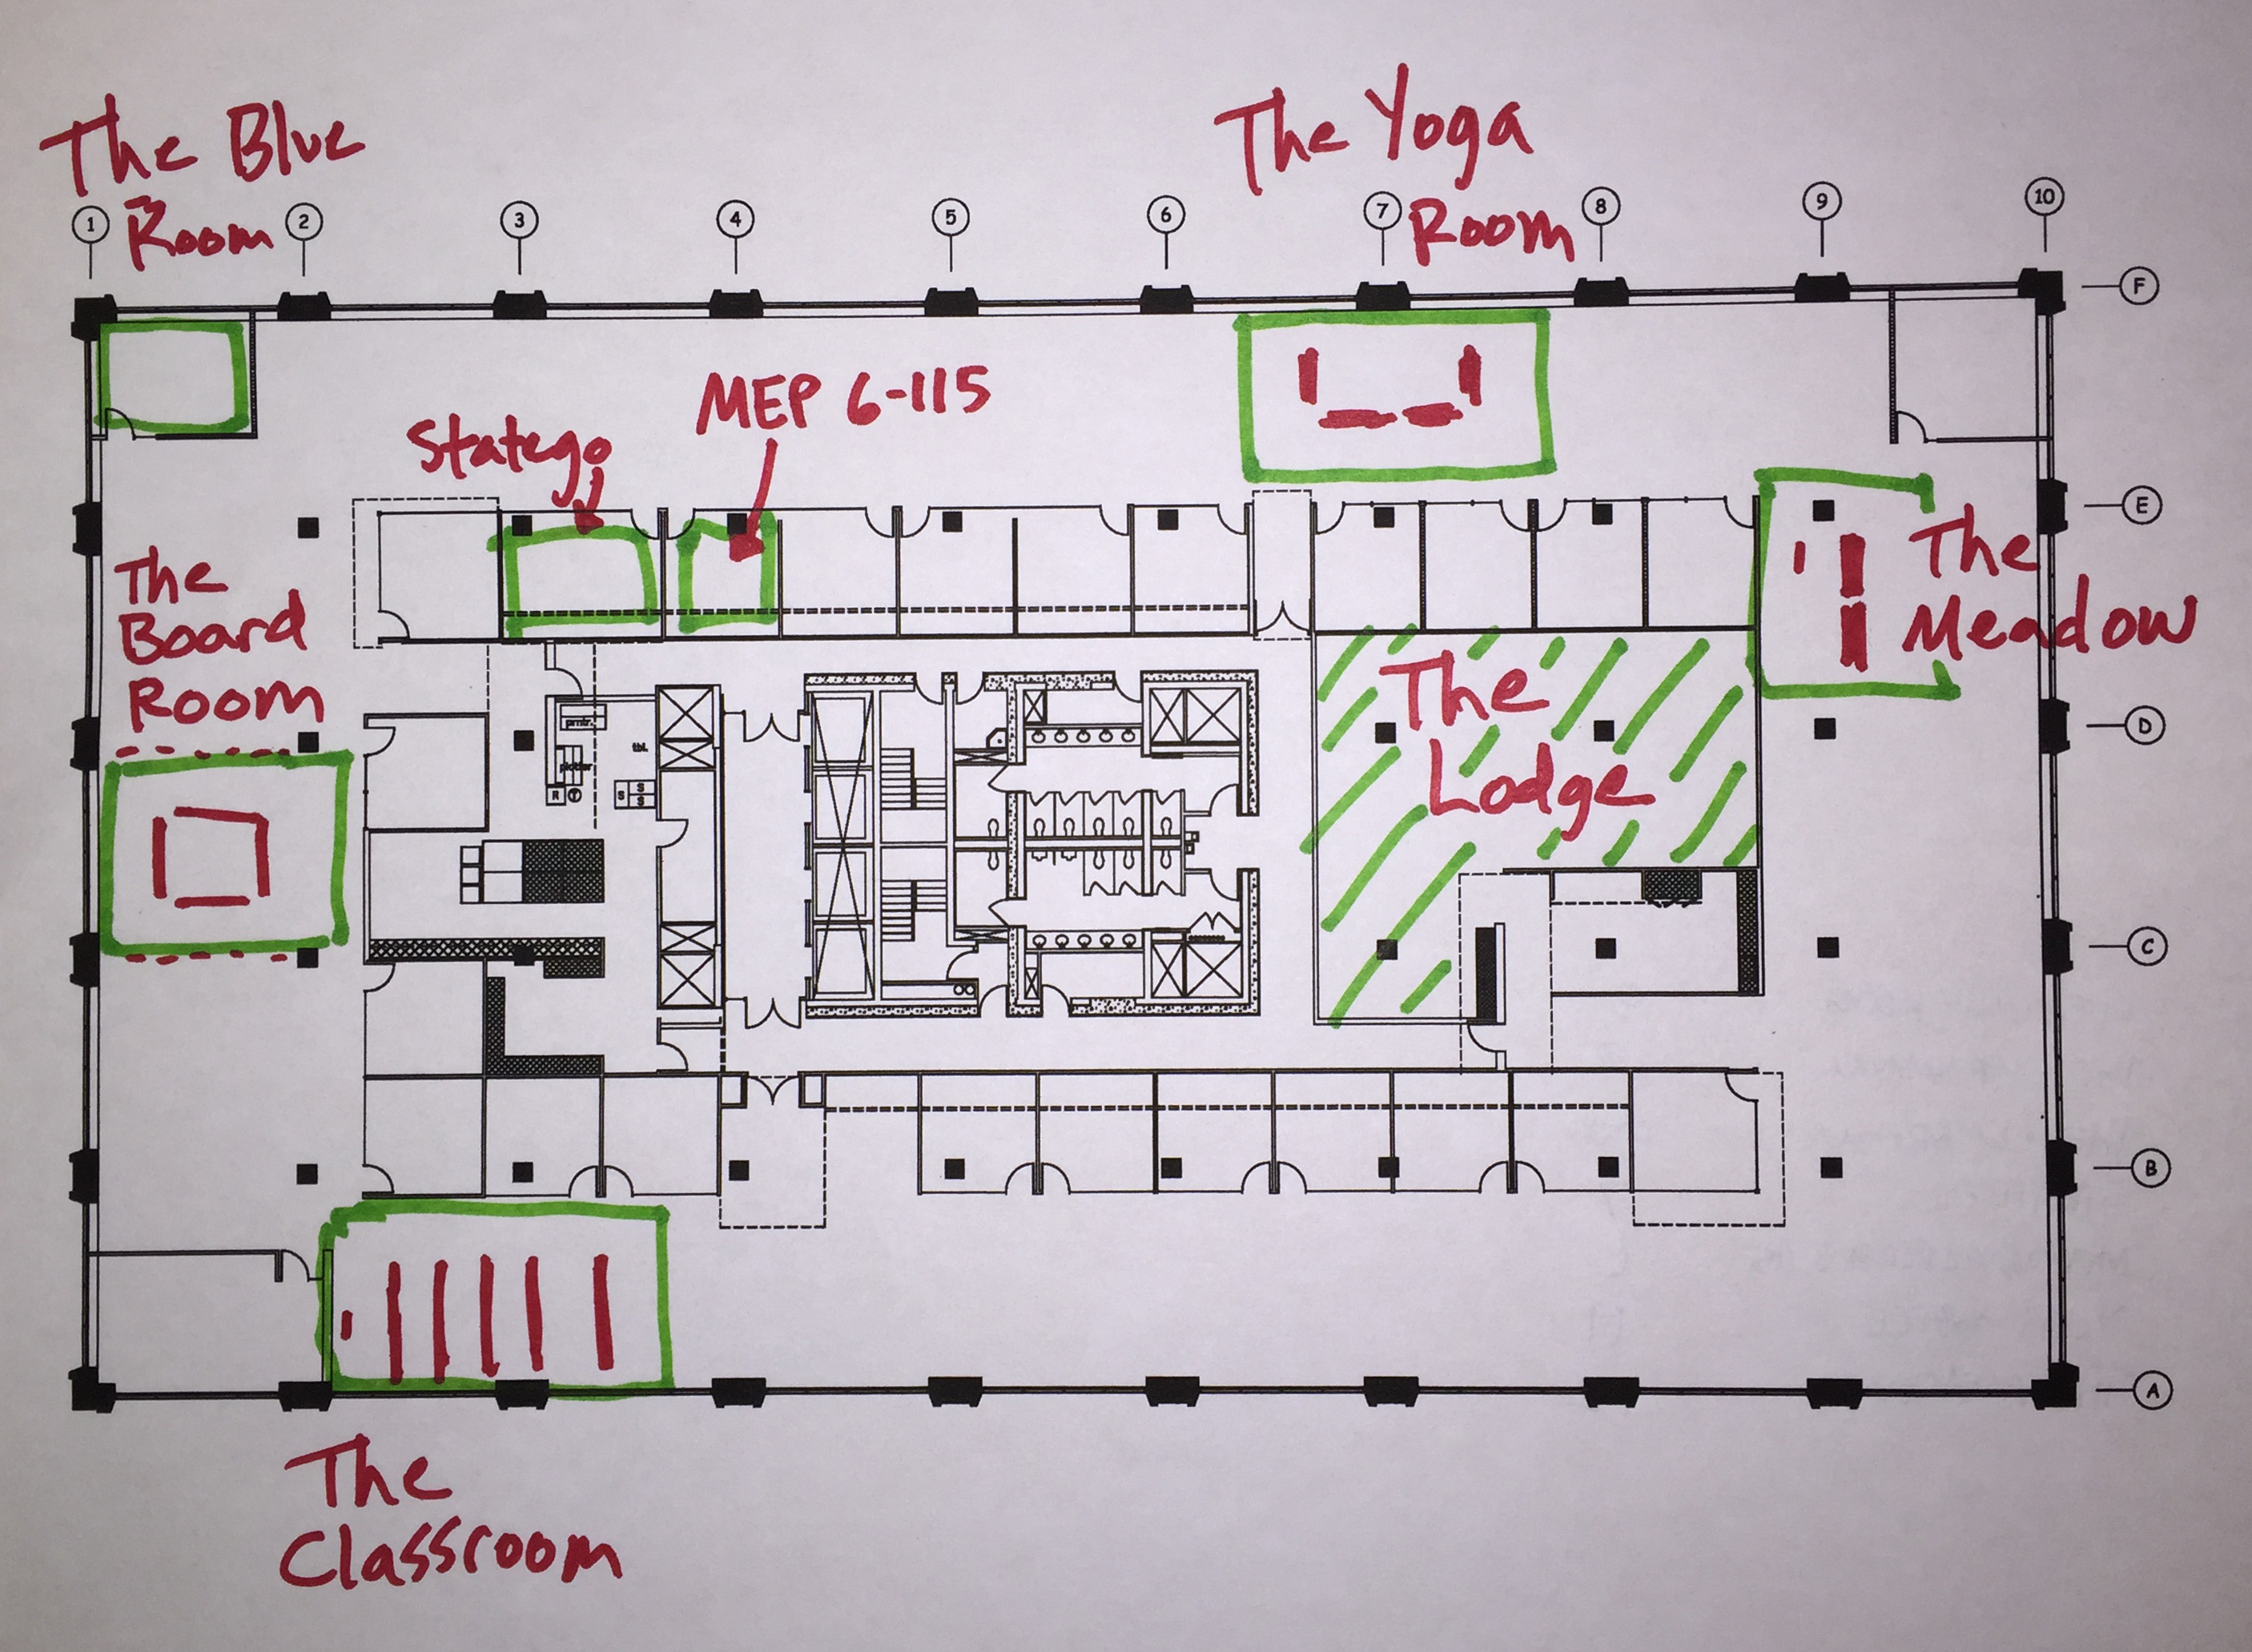 The Blue
Room
The Yoga
Room
1
2
3
4
5
6
7
8
9
10
F
MEP 6-115
Statego
E
The
Meadow
The
Board
Room
The
Lodge
D
prntr.
tbl.
plotter
R
T
S
S
S
C
B
A
The
Classroom